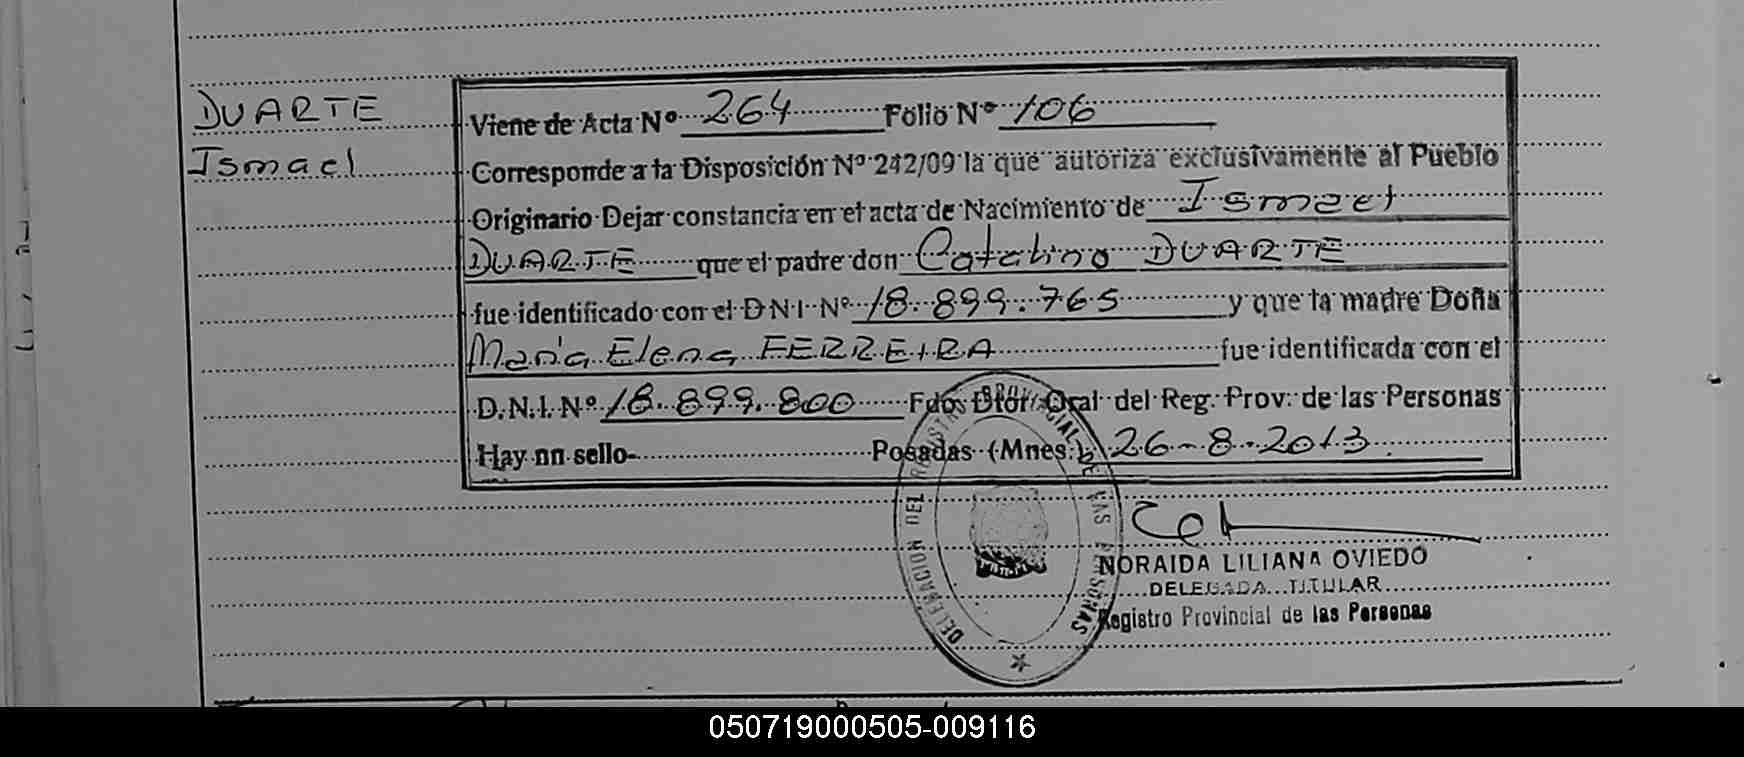 DUARTE
Ismael
Viene de Acta Nº 264 Folio Nº 106
Corresponde a la Disposición Nº 242/09 la que autoriza exclusivamente al Pueblo
Originario Dejar constancia en el acta de Nacimiento de Ismael
DUARTE que el padre don Catalino DUARTE
fue identificado con el D N I Nº 18.899.765 y que la madre Doña
María Elena FERREIRA fue identificada con el
D.N.I. Nº 18.899.800 Fdo. Dtor. Gral del Reg. Prov. de las Personas
Hay un sello- Posadas (Mnes.), 26-8-2013
DELEGACION DEL REGISTRO PROVINCIAL DE LAS PERSONAS
NORAIDA LILIANA OVIEDO
DELEGADA TITULAR
Registro Provincial de las Personas
050719000505-009116